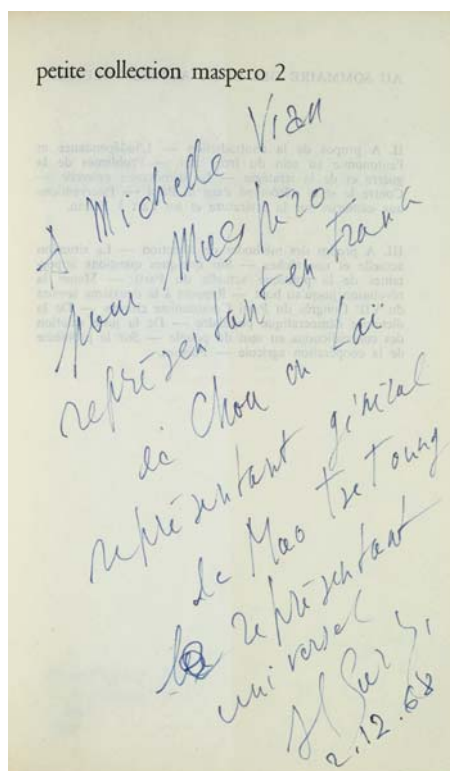 petite collection maspero 2
A Michelle Vian
pour Maspéro
représentant en France
de Chou en Laï
représentant général
de Mao Tse Toung
le représentant
universel
2.12.68